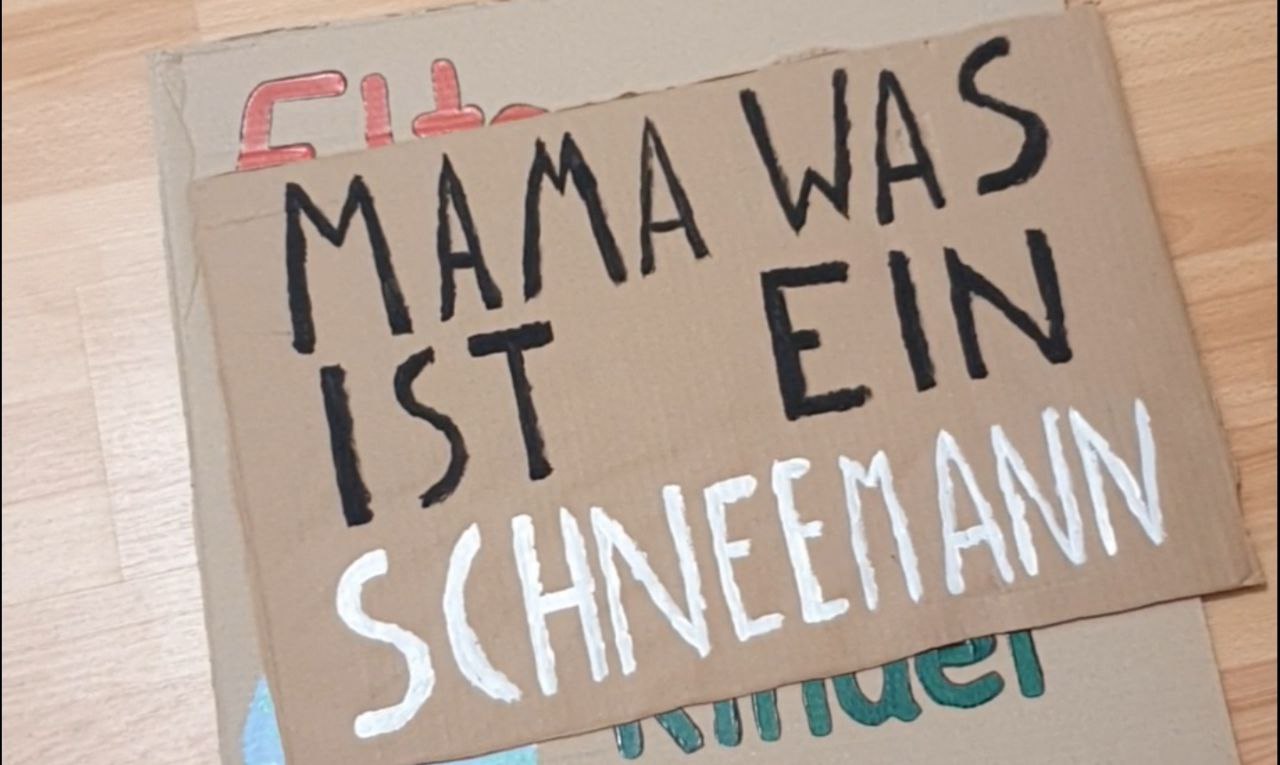 Elte
MAMA WAS
IST EIN
SCHNEEMANN
Kinder